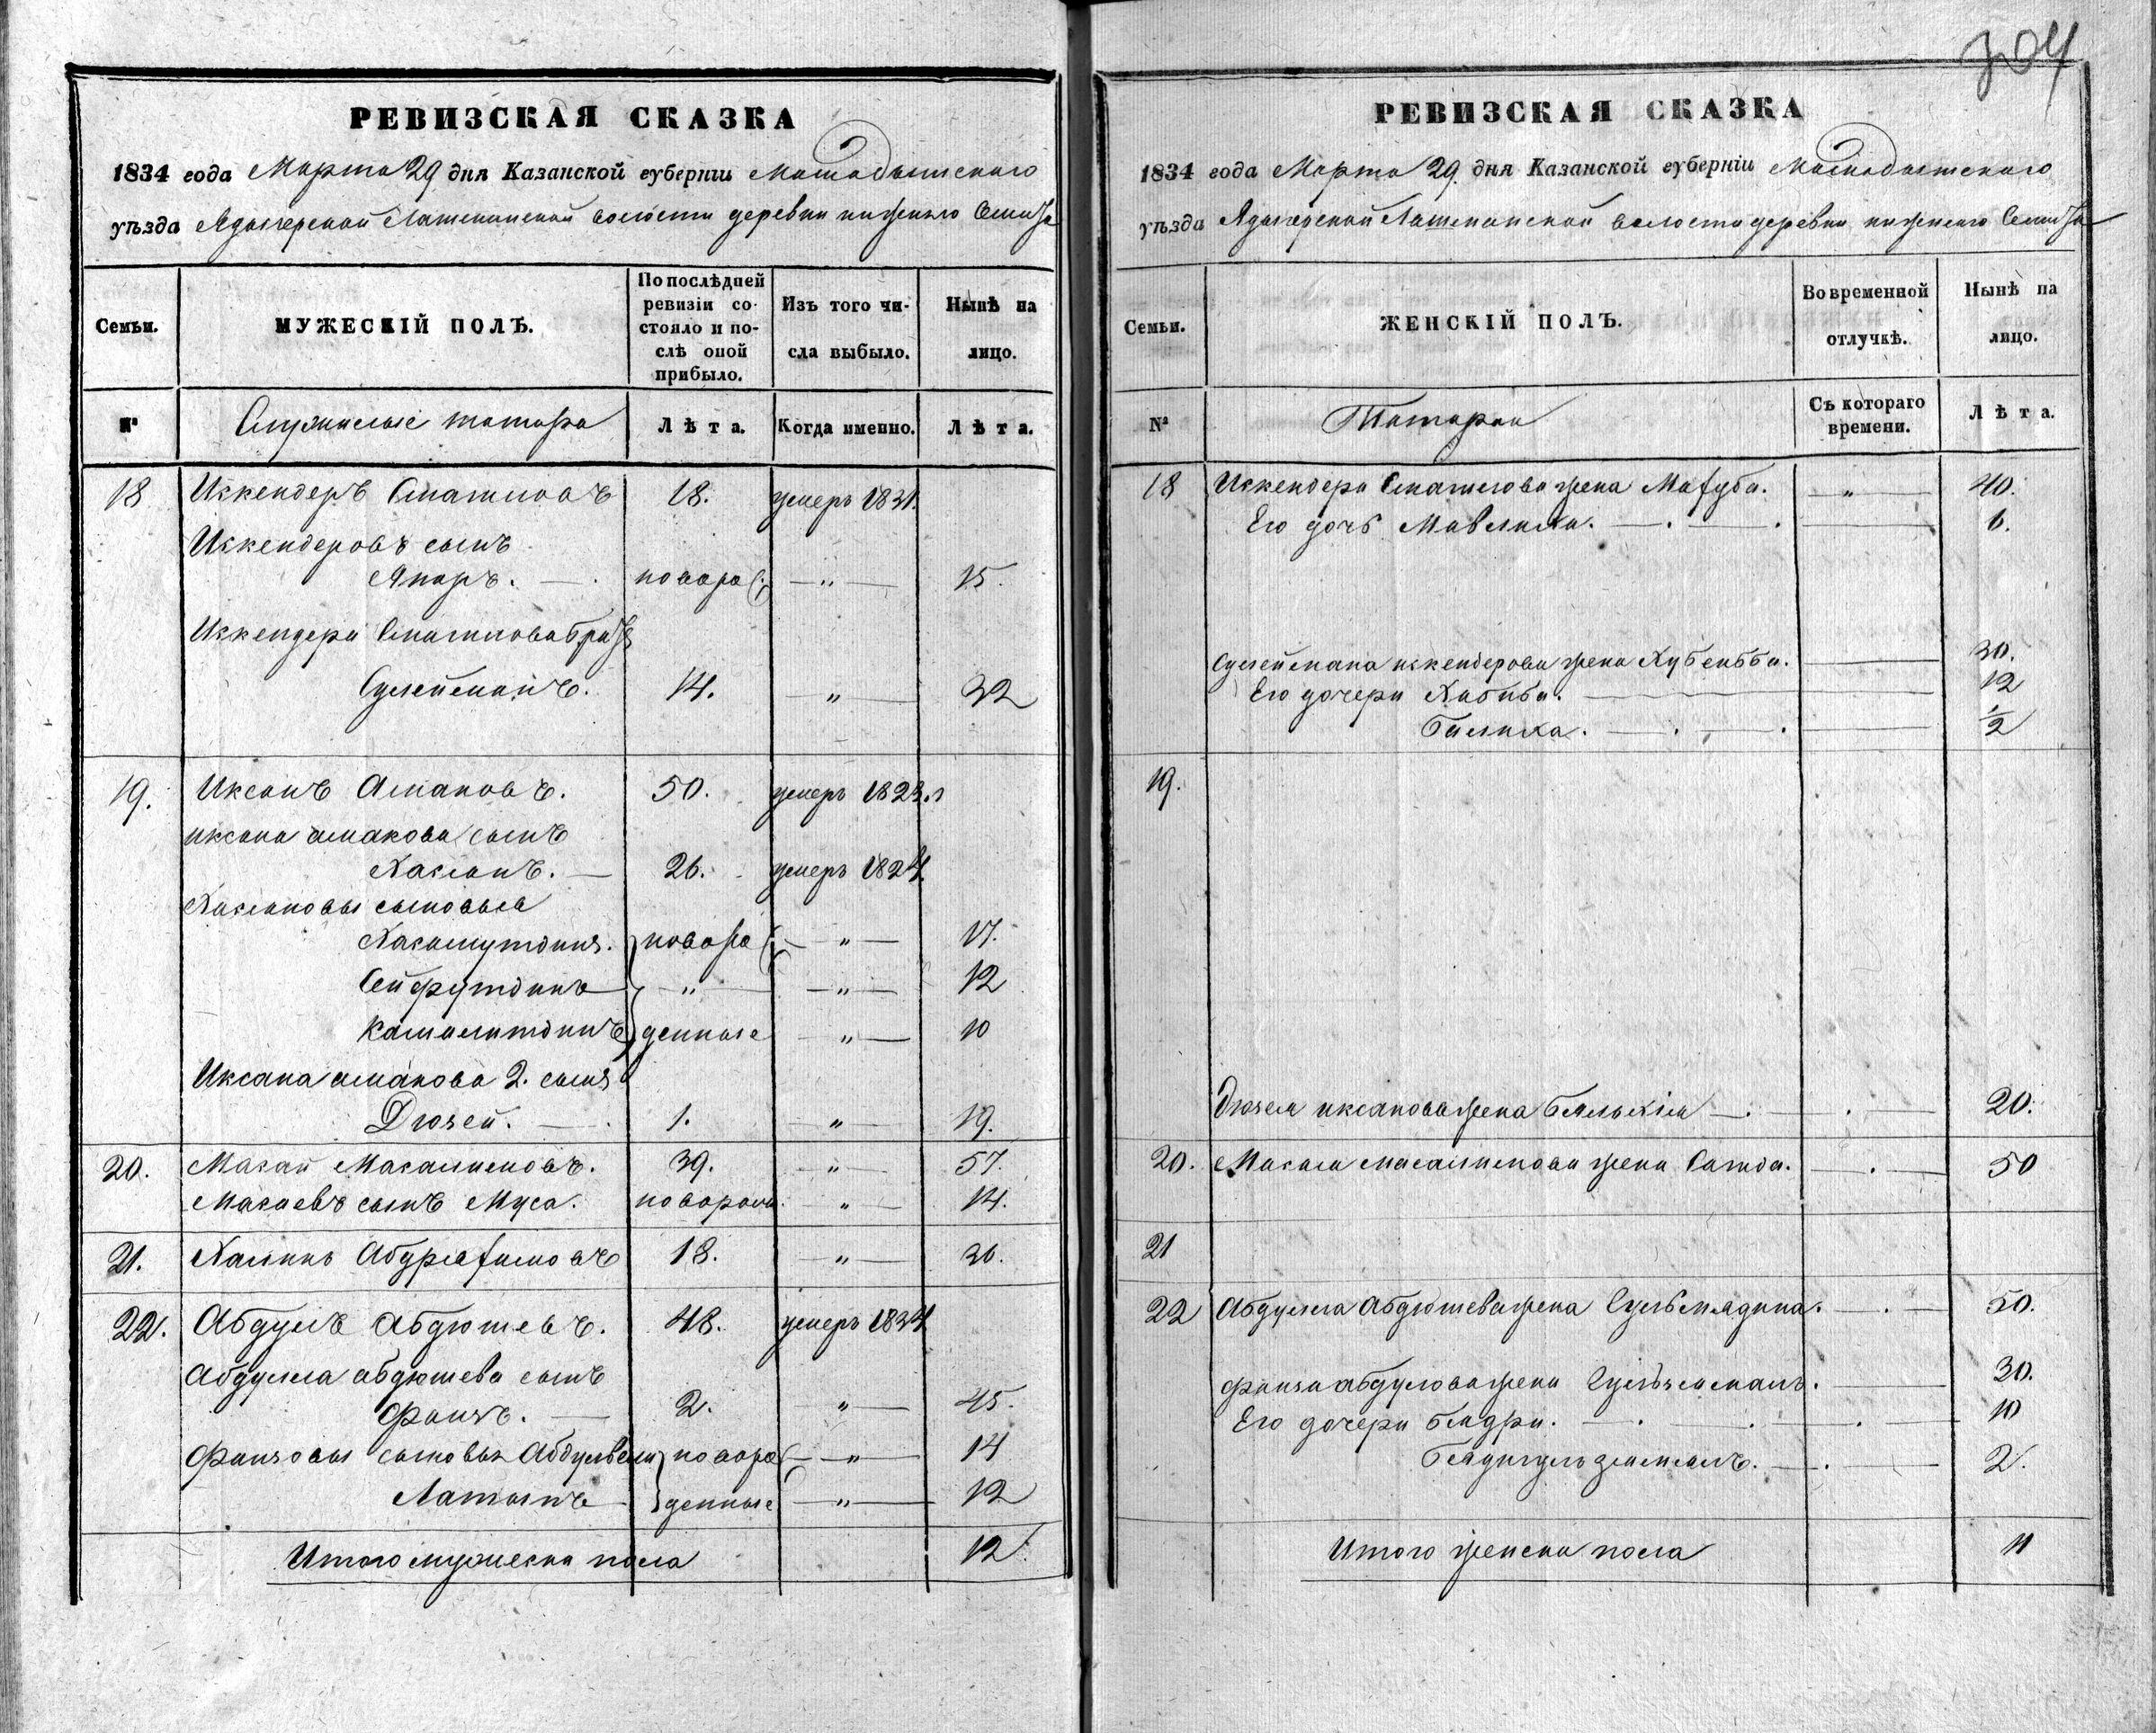 304
РЕВИЗСКАЯ СКАЗКА
1834 года Марта 29 дня Казанской губерніи Мамадышскаго
уѣзда Ядыгерской волости деревни нижняго
Семьи.
МУЖЕСКІЙ ПОЛЪ.
По послѣдней ревизіи состояло и послѣ оной прибыло.
Изъ того числа выбыло.
Нынѣ на лицо.
№
Служилые татара
Лѣта.
Когда именно.
Лѣта.
18 Искендеръ Сматиловъ 18. умеръ 1831.
Искендеровъ сынъ
Япаръ. — новоро(: — „ — 15.
Искендера Сматилова братъ
Сулейманъ. 14. — „ — 32
19. Иксанъ Амановъ. 50. умеръ 1823.
иксана аманова сынъ
Хасанъ. — 26. умеръ 1824.
Хасановы сыновья
Хисамутдинъ. новоро(: — „ — 17.
Сейфутдинъ — „ — — „ — 12
Камалитдинъ денные — „ — 10
Иксана аманова 2. сынъ
Дюзей. — 1. — „ — 19.
20. Макай 39. — „ — 57.
Макаевъ сынъ Муса. новорож. — „ — 14.
21. Халинъ 18. — „ — 36.
22. Абдулъ Абдюшевъ. 48. умеръ 1834
Абдулла абдюшева сынъ
Фаизъ. — 2. — „ — 45.
Фаизовы сыновья новоро(: — „ — 14
Латыпъ денные — „ — 12
Итого мужеска пола 12.
РЕВИЗСКАЯ СКАЗКА
1834 года Марта 29. дня Казанской губерніи Мамадышскаго
уѣзда Ядыгерской волости деревни нижняго
Семьи.
ЖЕНСКІЙ ПОЛЪ.
Во временной отлучкѣ.
Нынѣ на лицо.
№
Татарки
Съ котораго времени.
Лѣта.
18 Искендера Сматилова жена Махуба. — „ — 40.
Его дочь Мавлиха. — 6.
Сулеймана искендерова жена Хубейбба. — 30.
Его дочери Хабиба. — 12
Балиха. — 1/2
19.
Дюзея иксанова жена — 20.
20. Макая жена Сагида. — 50
21
22 Абдулла Абдюшева жена — 50.
Фаиза абдулова жена — 30.
Его дочери Бядри. — 10
— 2.
Итого женска пола 11